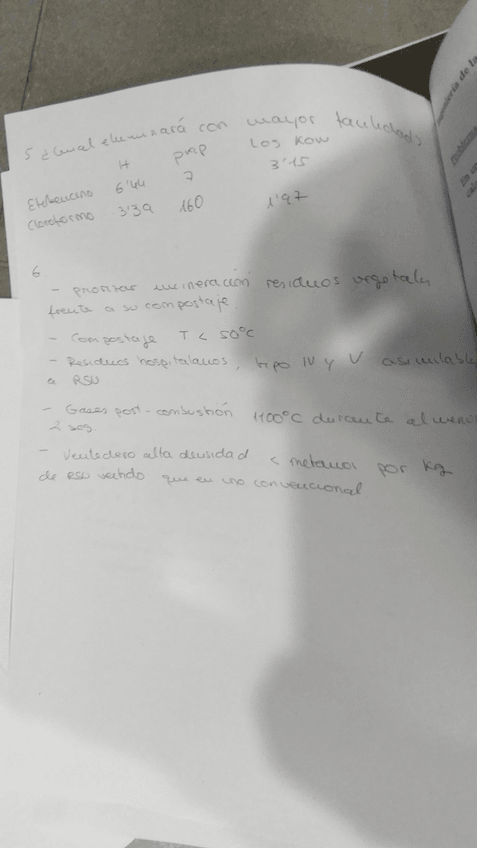 5 ¿Cual eliminará con mayor facilidad?
H pvap Log Kow
Etilbenceno 6'44 7 3'15
Cloroformo 3'39 160 1'97
6
- priorizar incineración residuos vegetales
frente a su compostaje.
- Compostaje T < 50°C
- Residuos hospitalarios, tipo IV y V asimilable
a RSU
- Gases post-combustión 1100°C durante al menos
2 seg.
- Vertedero alta densidad < metano por kg
de RSU vertido que en uno convencional
ingeniería de la
Problema